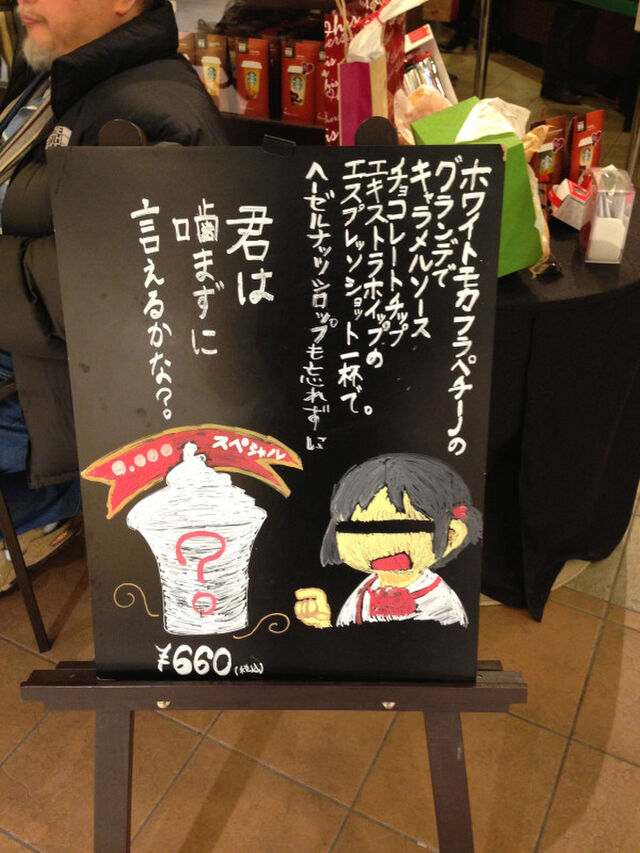 ホワイトモカフラペチーノの
グランデで
キャラメルソース
チョコレートチップ
エキストラホイップの
エスプレッソショット一杯で。
ヘーゼルナッツシロップも忘れずに
君は
噛まずに
言えるかな?。
スペシャル
?
¥660(税込)